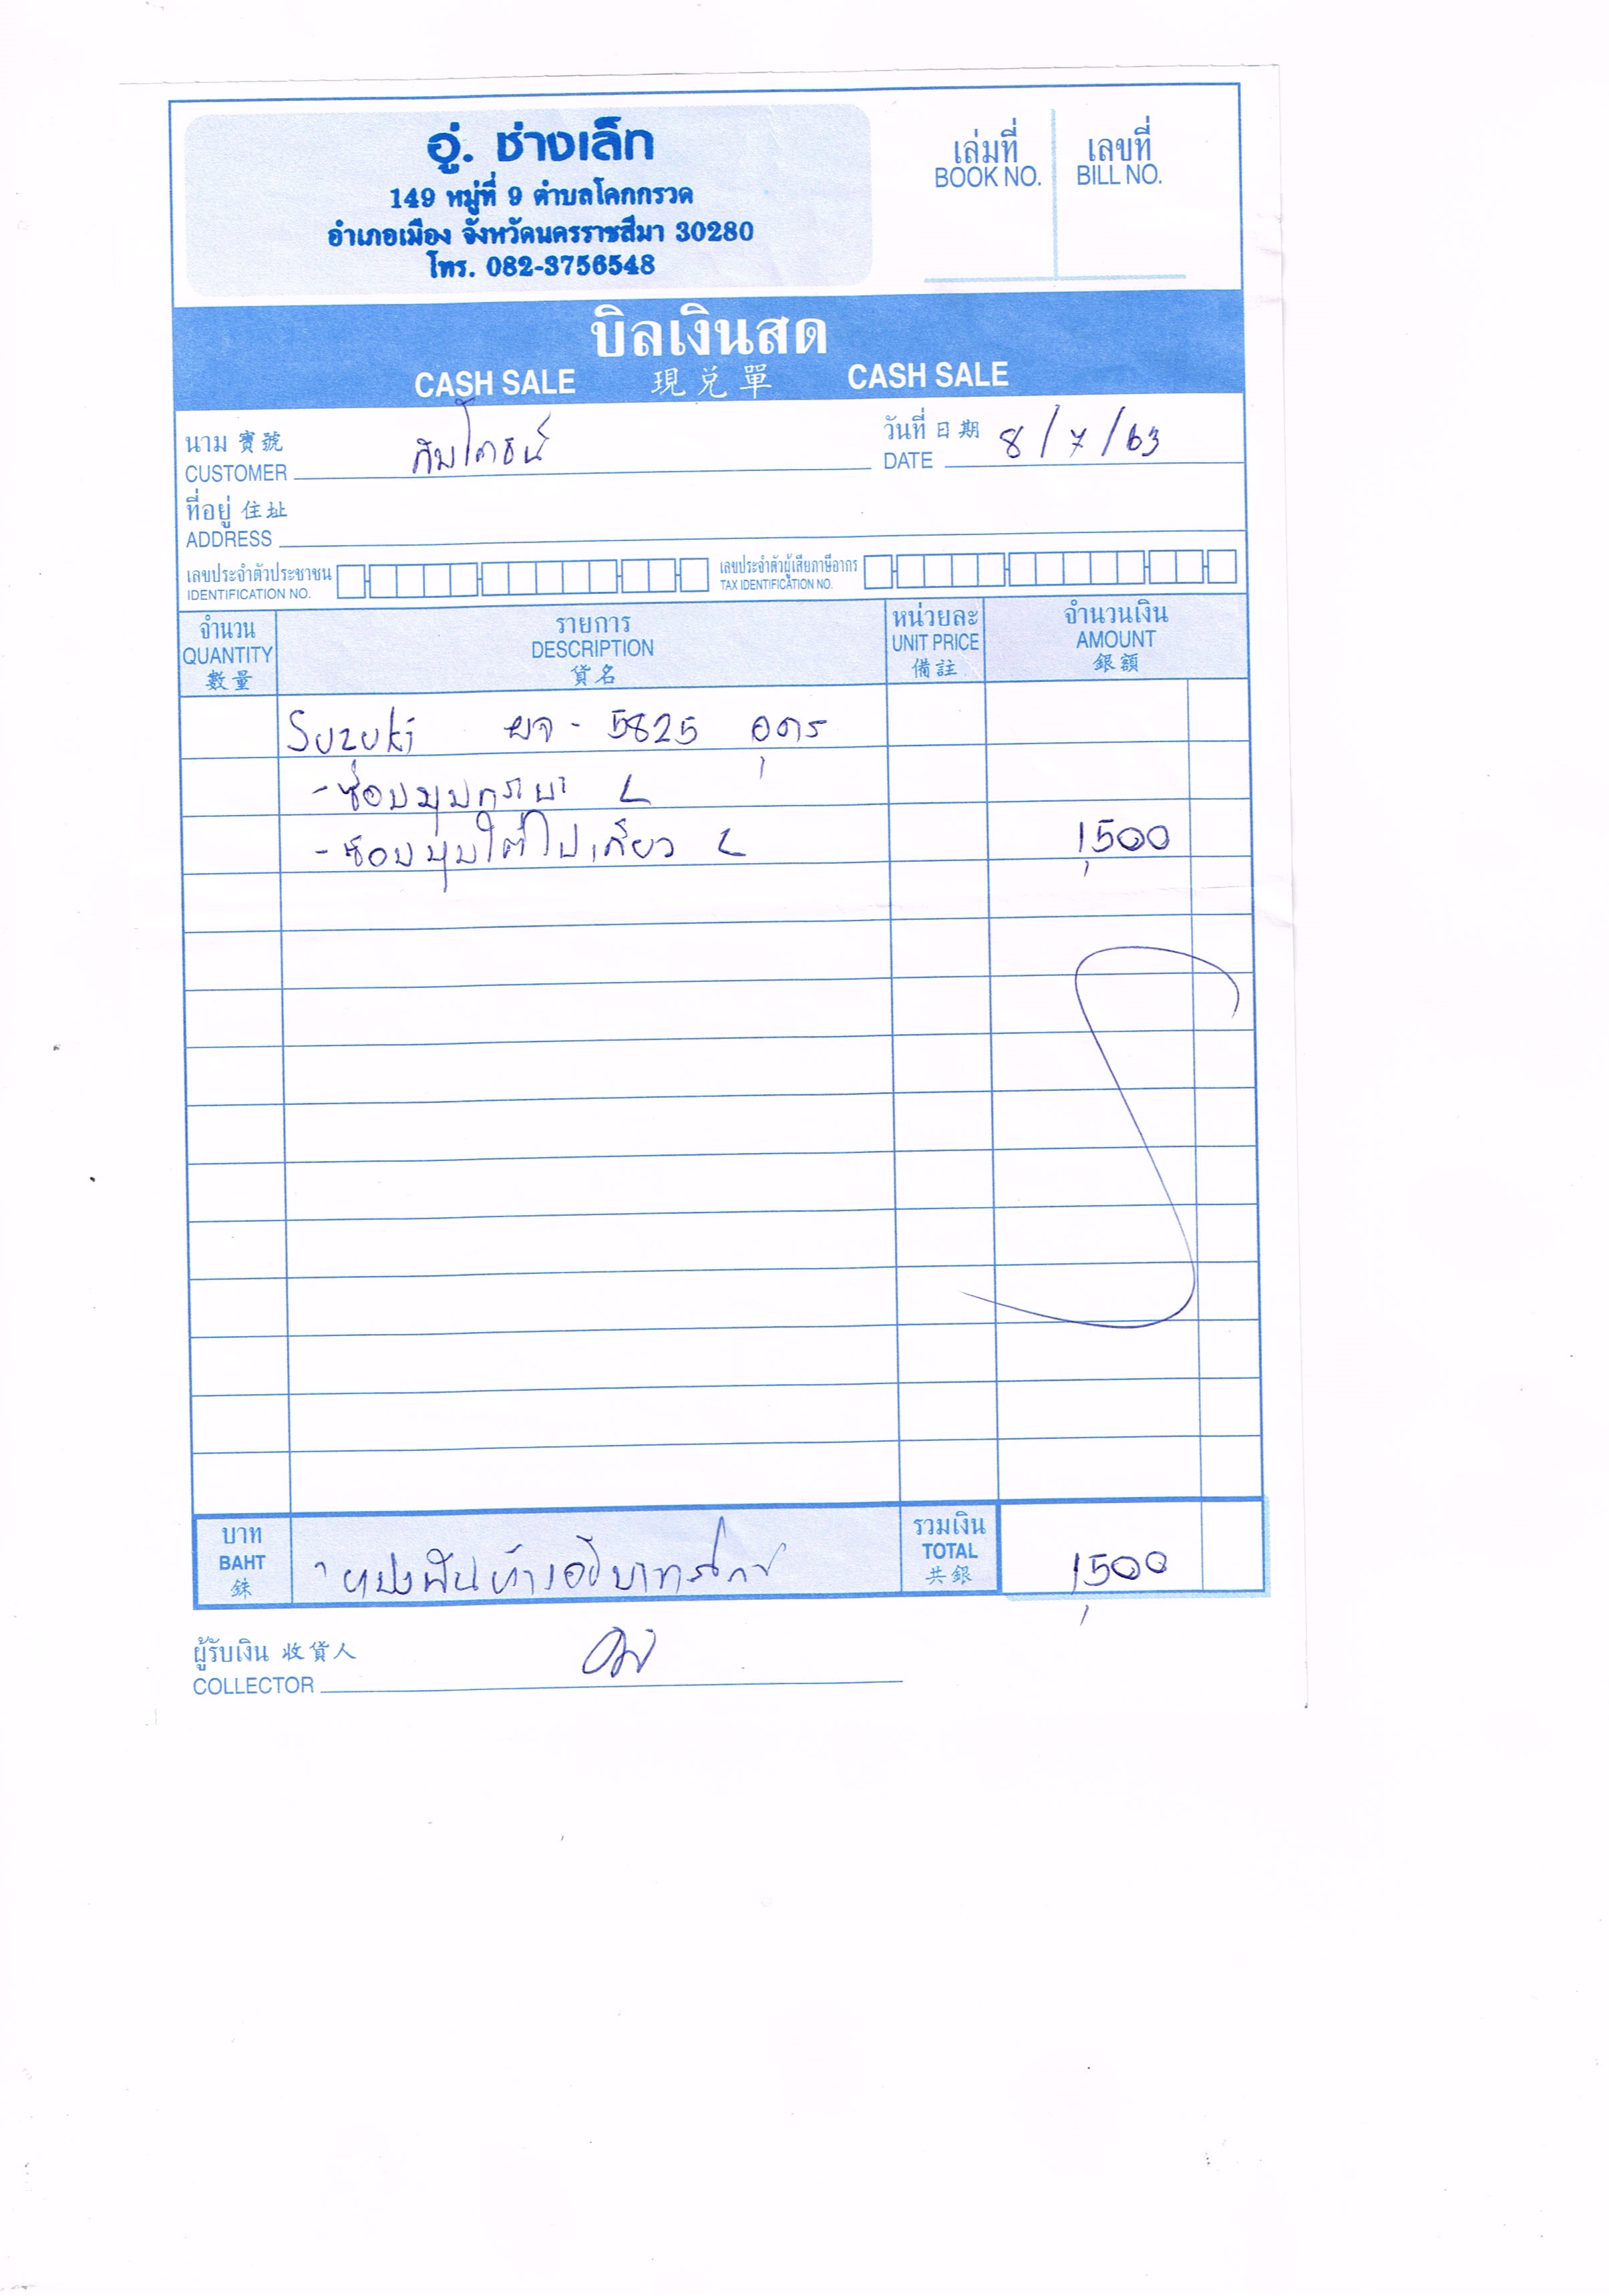 อู่. ช่างเล็ก
149 หมู่ที่ 9 ตำบลโคกกรวด
อำเภอเมือง จังหวัดนครราชสีมา 30280
โทร. 082-3756548
เล่มที่ เลขที่
BOOK NO. BILL NO.
บิลเงินสด
CASH SALE 現兌單 CASH SALE
นาม 寶號 วันที่ 日期 8/7/63
CUSTOMER DATE
ที่อยู่ 住址
ADDRESS
เลขประจำตัวประชาชน เลขประจำตัวผู้เสียภาษีอากร
IDENTIFICATION NO. TAX IDENTIFICATION NO.
จำนวน รายการ หน่วยละ จำนวนเงิน
QUANTITY DESCRIPTION UNIT PRICE AMOUNT
數量 貨名 備註 銀額
Suzuki ผจ - 5825 อุดร
- ซ่อมมุมกันชน L
- ซ่อมมุมใต้ไฟเลี้ยว L 1,500
บาท รวมเงิน
BAHT หนึ่งพันห้าร้อยบาทถ้วน TOTAL 1,500
銖 共銀
ผู้รับเงิน 收貨人
COLLECTOR